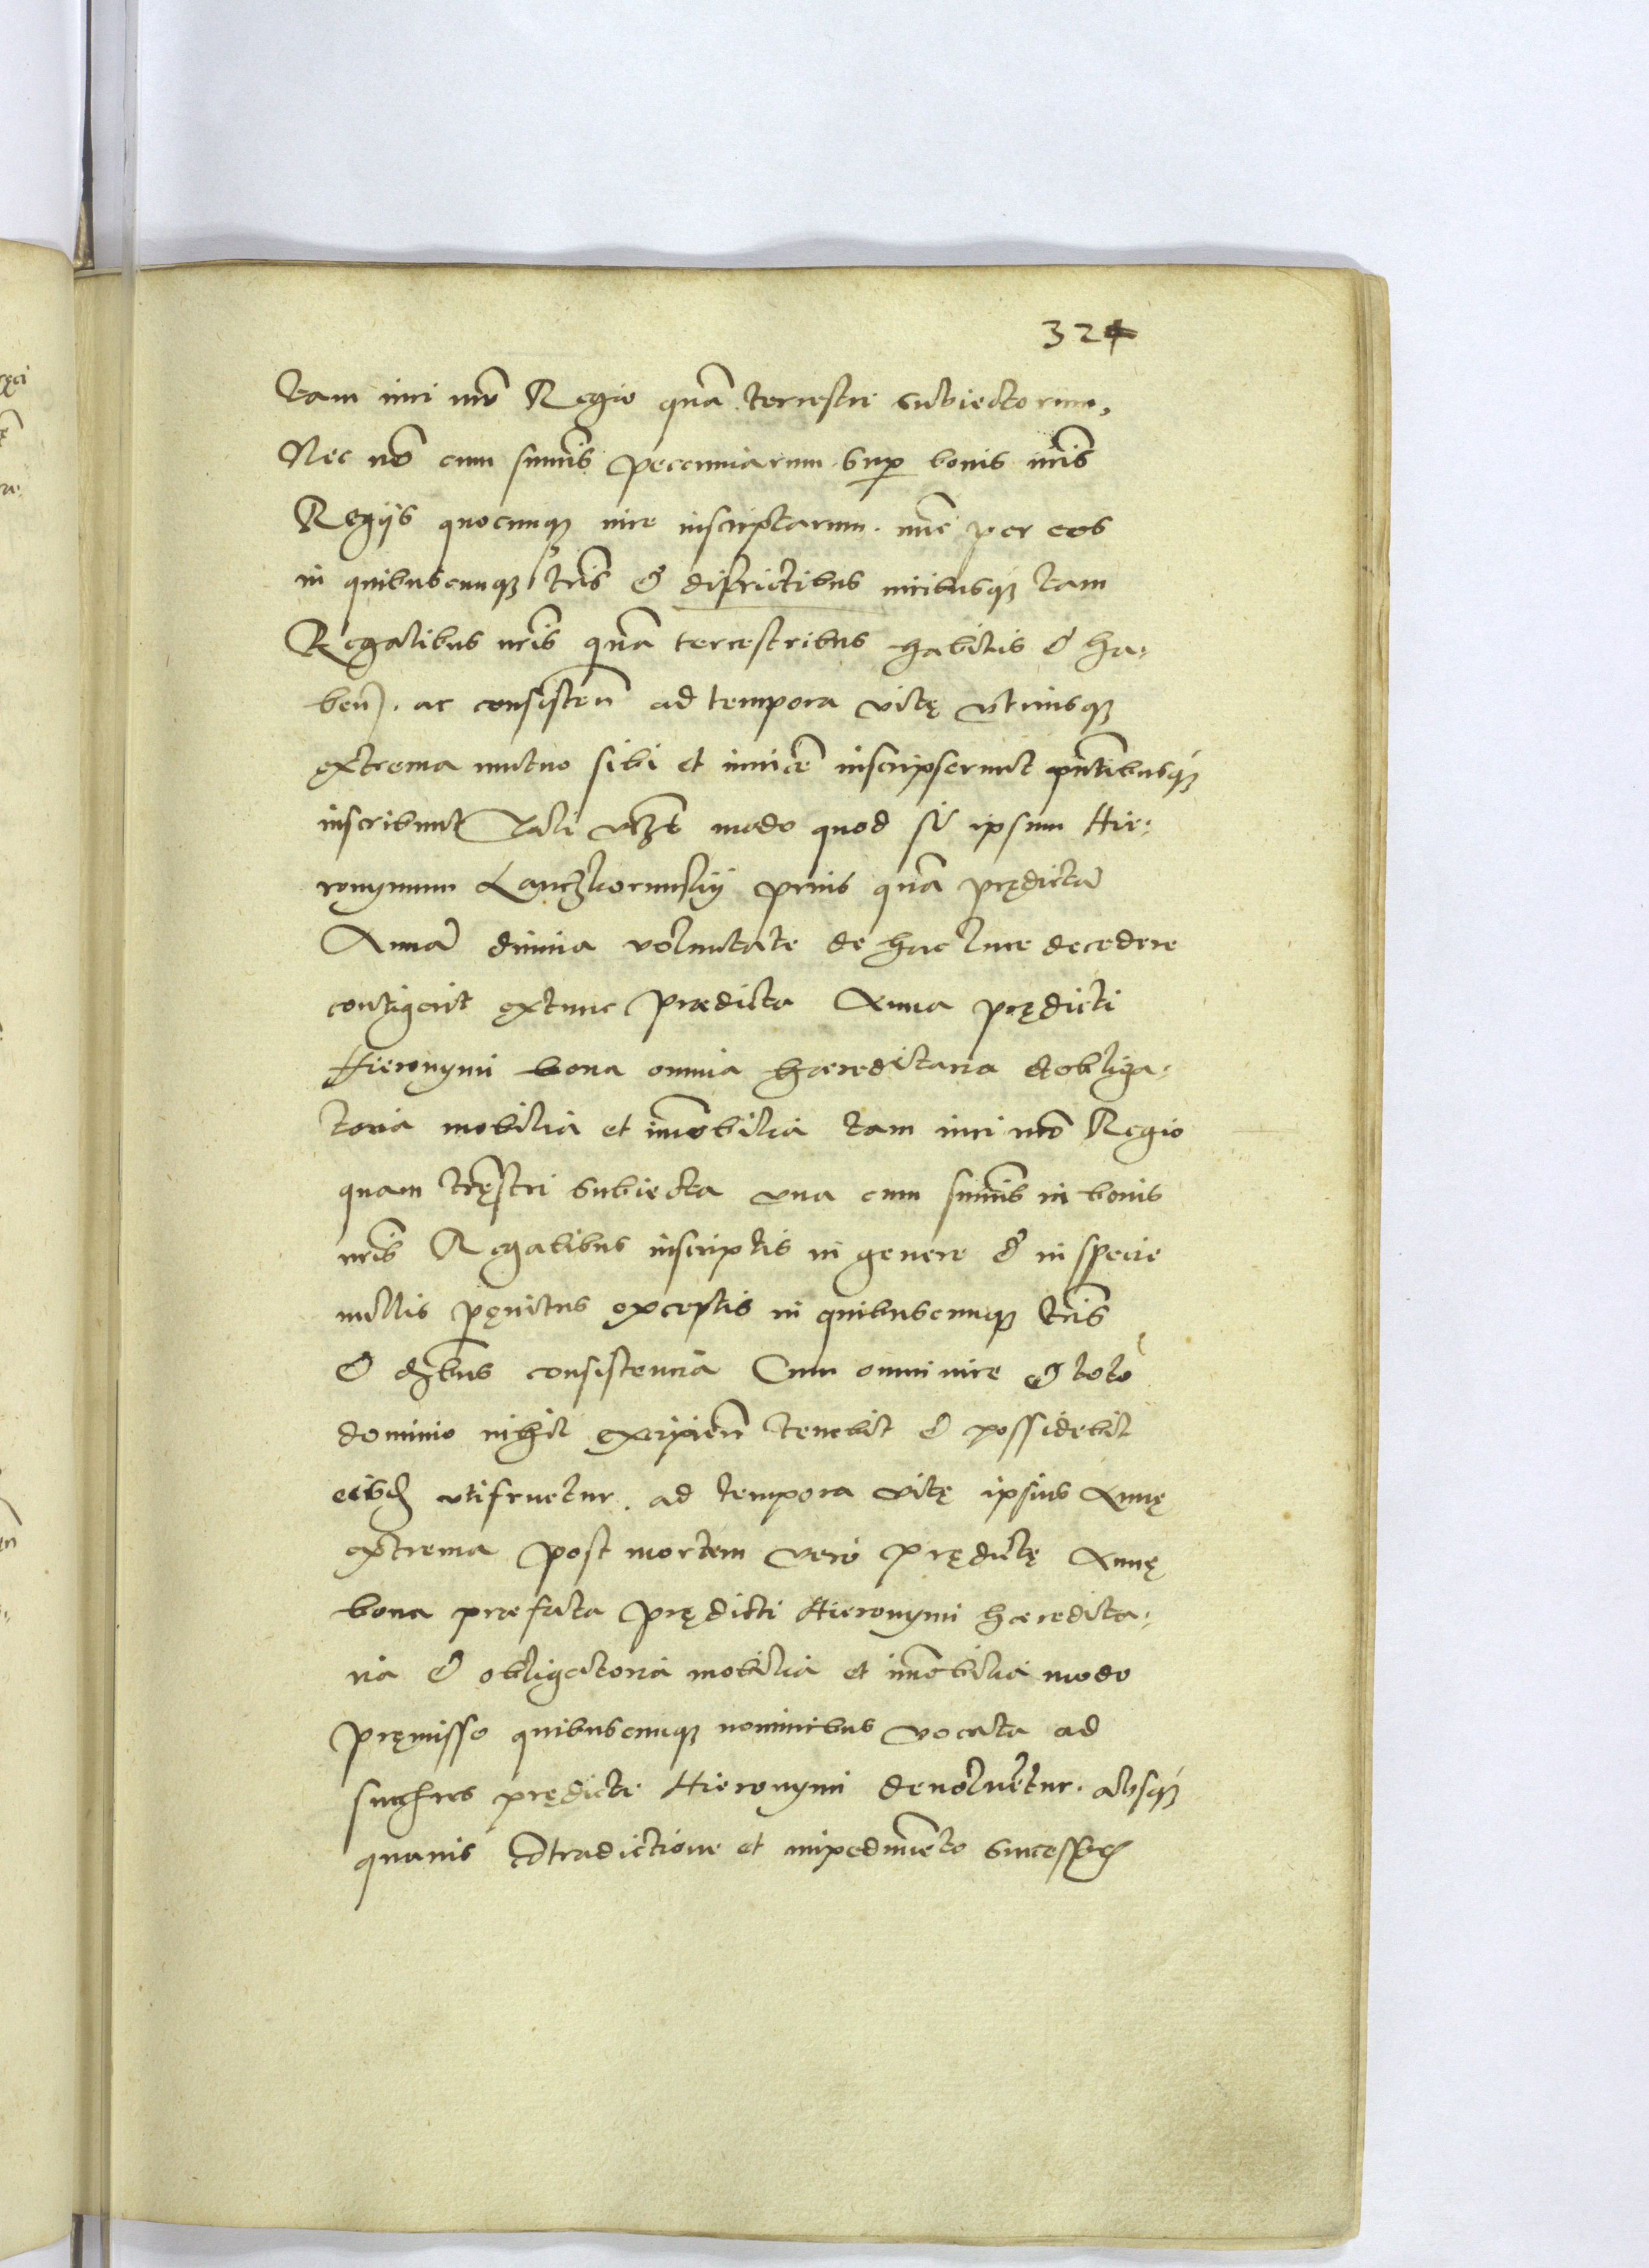 324
tam iuri nrō Regio quā terrestri subiectorum,
Nec nō cum sum̄is pecuniarum sup bonis nr̄is
Regijs quocunq3 iure inscriptarum. nūc per eos
in quibuscunq3 tr̄is & districtibus iuribusq3 tam
Regalibus nr̄is quā terrestribus habitis & ha-
ben̄. ac consisten̄ ad tempora vitę vtriusq3
extrema mutuo sibi et inuicē inscripserunt pn̄tibusq3
inscribunt Tali vrz̄ modo quod si ipsum Hie-
ronymum Lanczkorunskij prius quā prędictā
Annā diuina voluntate de hac luce decedere
contigerit extunc prædicta Anna prędicti
Hieronymi bona omnia hæreditaria et obliga-
toria mobilia et im̄obilia tam iuri nrō Regio
quam tr̄ęstri subiecta vna cum sum̄is in bonis
nr̄is Regalibus inscriptis in genere & in specie
nullis pęnitus exceptis in quibuscunq3 tr̄is
& dz̄bus consistencia Cum omni iure & toto
dominio nihil excipien̄ tenebit & possidebit
eisd vtifruetur. ad tempora vitę ipsius Annę
extrema post mortem vero prędictę Annę
bona præfata prędicti Hieronymi hæredita-
ria & obligatoria mobilia et im̄obilia modo
pręmisso quibuscunq3 nominibus vocata ad
prędicti Hieronymi deuoluētur. absq3
quauis cōtradictione et impedimēto